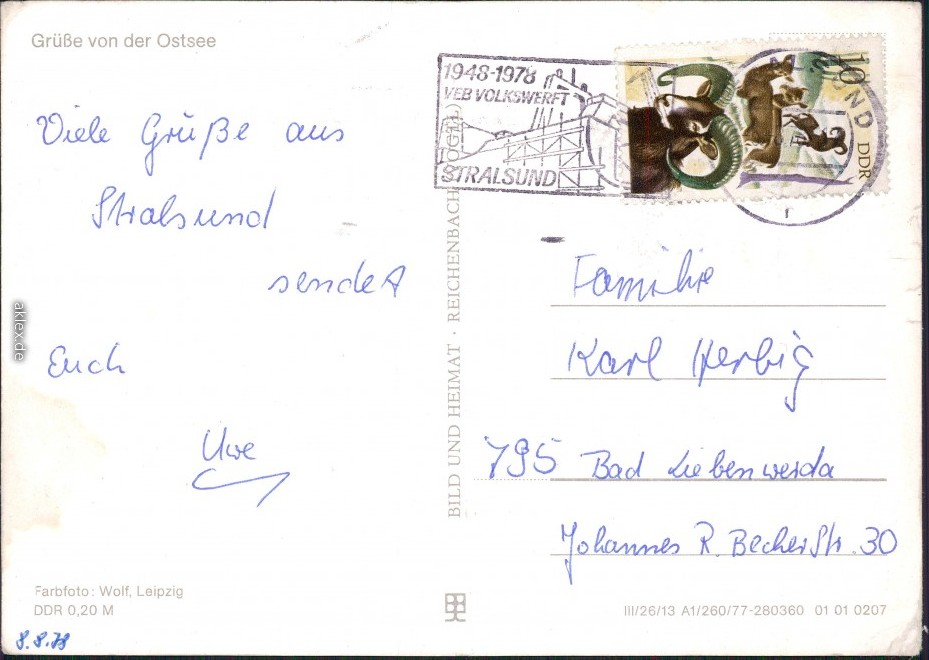 Grüße von der Ostsee
Viele Grüße aus
Stralsund
sendet
Euch
Uwe
Farbfoto: Wolf, Leipzig
DDR 0,20 M
8.8.78
BILD UND HEIMAT · REICHENBACH (VOGTL)
1948-1978
VEB VOLKSWERFT
STRALSUND
10
DDR
Familie
Karl Herbig
795 Bad Liebenwerda
Johannes R. Becher Str. 30
III/26/13 A1/260/77-280360 01 01 0207
aklex.de